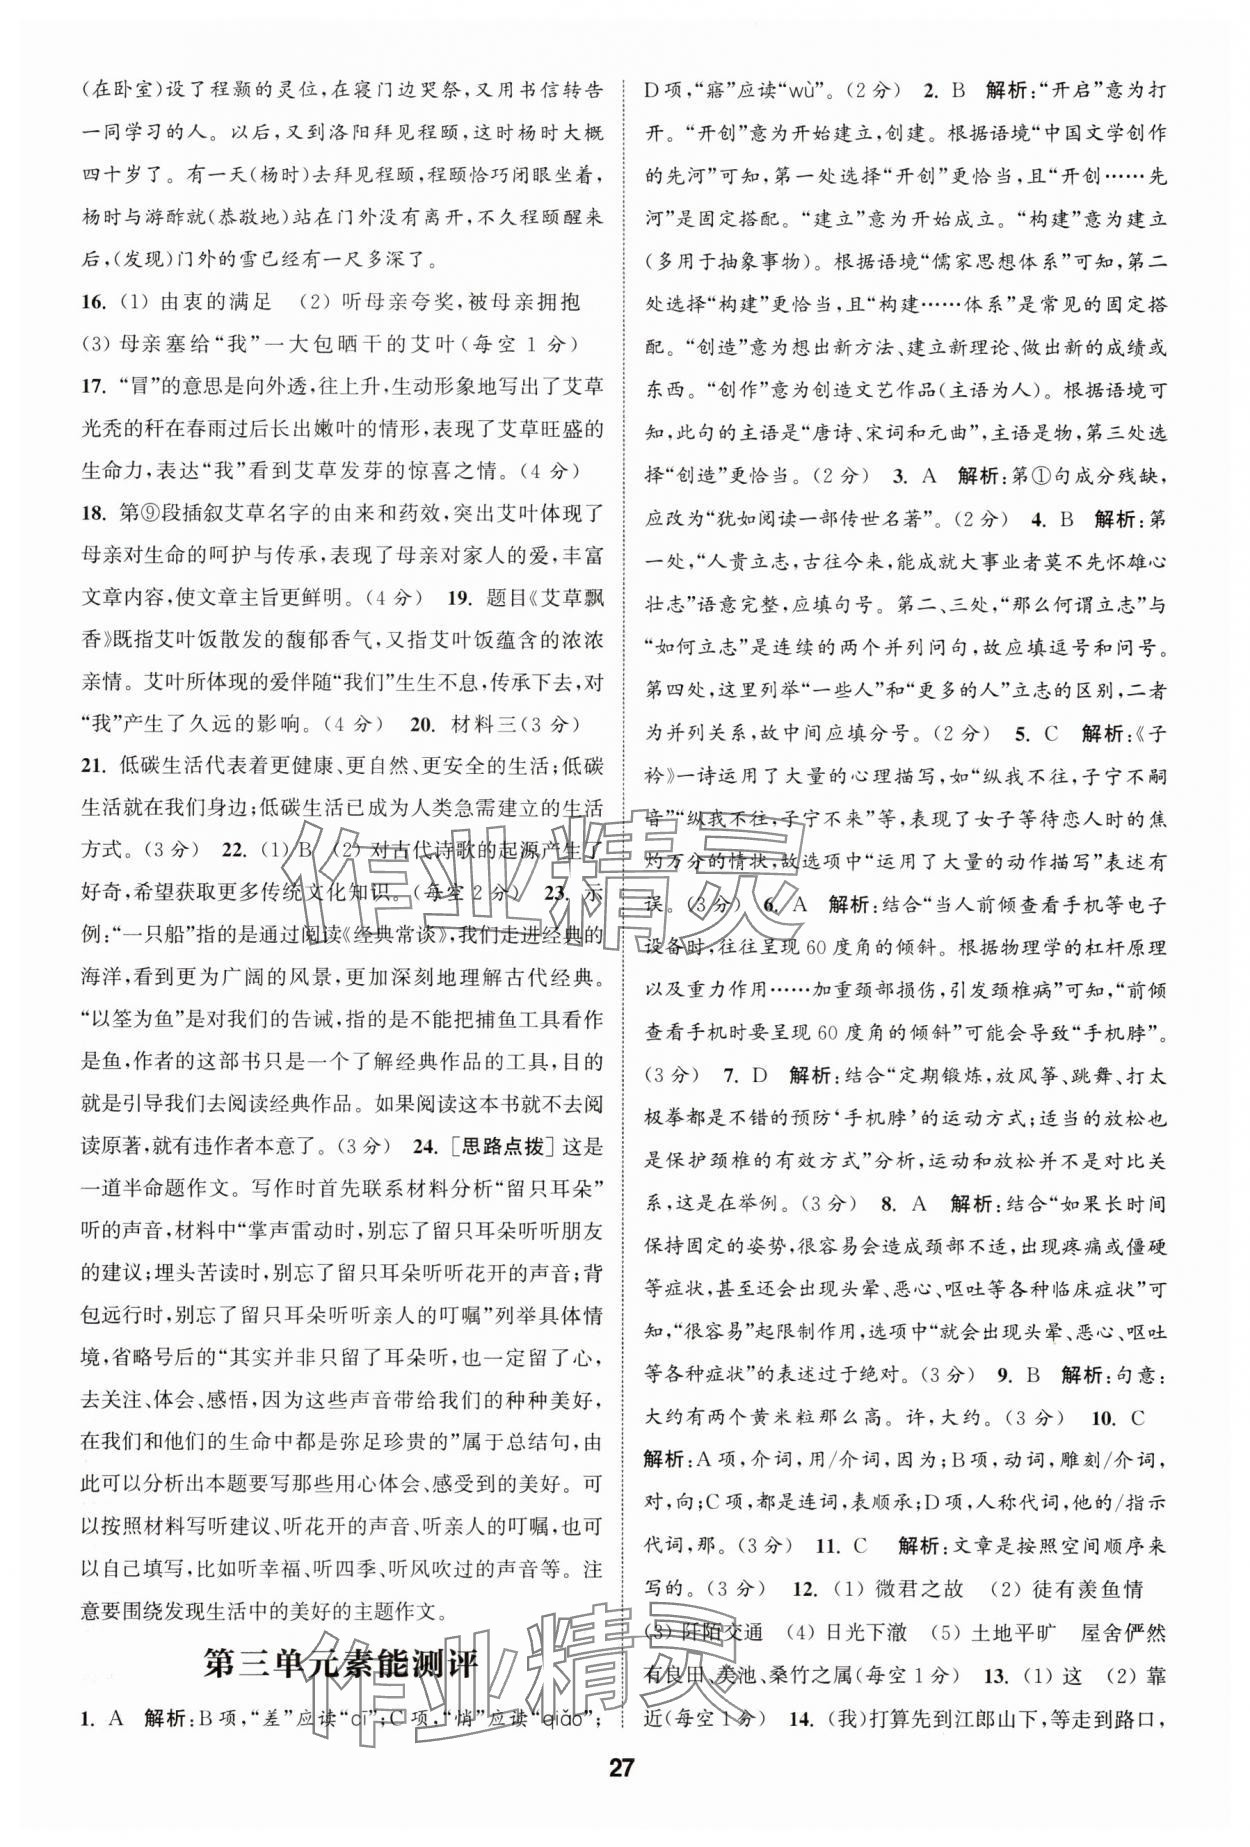 (在卧室)设了程颢的灵位,在寝门边哭祭,又用书信转告
一同学习的人。以后,又到洛阳拜见程颐,这时杨时大概
四十岁了。有一天(杨时)去拜见程颐,程颐恰巧闭眼坐着,
杨时与游酢就(恭敬地)站在门外没有离开,不久程颐醒来
后,(发现)门外的雪已经有一尺多深了。
16. (1) 由衷的满足 (2) 听母亲夸奖,被母亲拥抱
(3) 母亲塞给“我”一大包晒干的艾叶(每空 1 分)
17. “冒”的意思是向外透,往上升,生动形象地写出了艾草
光秃的秆在春雨过后长出嫩叶的情形,表现了艾草旺盛的
生命力,表达“我”看到艾草发芽的惊喜之情。(4 分)
18. 第⑨段插叙艾草名字的由来和药效,突出艾叶体现了
母亲对生命的呵护与传承,表现了母亲对家人的爱,丰富
文章内容,使文章主旨更鲜明。(4 分) 19. 题目《艾草飘
香》既指艾叶饭散发的馥郁香气,又指艾叶饭蕴含的浓浓
亲情。艾叶所体现的爱伴随“我们”生生不息,传承下去,对
“我”产生了久远的影响。(4 分) 20. 材料三(3 分)
21. 低碳生活代表着更健康、更自然、更安全的生活;低碳
生活就在我们身边;低碳生活已成为人类急需建立的生活
方式。(3 分) 22. (1) B (2) 对古代诗歌的起源产生了
好奇,希望获取更多传统文化知识。(每空 2 分) 23. 示
例:“一只船”指的是通过阅读《经典常谈》,我们走进经典的
海洋,看到更为广阔的风景,更加深刻地理解古代经典。
“以筌为鱼”是对我们的告诫,指的是不能把捕鱼工具看作
是鱼,作者的这部书只是一个了解经典作品的工具,目的
就是引导我们去阅读经典作品。如果阅读这本书就不去阅
读原著,就有违作者本意了。(3 分) 24. [思路点拨] 这是
一道半命题作文。写作时首先联系材料分析“留只耳朵”
听的声音,材料中“掌声雷动时,别忘了留只耳朵听听朋友
的建议;埋头苦读时,别忘了留只耳朵听听花开的声音;背
包远行时,别忘了留只耳朵听听亲人的叮嘱”列举具体情
境,省略号后的“其实并非只留了耳朵听,也一定留了心,
去关注、体会、感悟,因为这些声音带给我们的种种美好,
在我们和他们的生命中都是弥足珍贵的”属于总结句,由
此可以分析出本题要写那些用心体会、感受到的美好。可
以按照材料写听建议、听花开的声音、听亲人的叮嘱,也可
以自己填写,比如听幸福、听四季、听风吹过的声音等。注
意要围绕发现生活中的美好的主题作文。
第三单元素能测评
1. A 解析:B 项,“差”应读“cī”;C 项,“悄”应读“qiǎo”;
D 项,“寤”应读“wù”。(2 分) 2. B 解析:“开启”意为打
开。“开创”意为开始建立,创建。根据语境“中国文学创作
的先河”可知,第一处选择“开创”更恰当,且“开创……先
河”是固定搭配。“建立”意为开始成立。“构建”意为建立
(多用于抽象事物)。根据语境“儒家思想体系”可知,第二
处选择“构建”更恰当,且“构建……体系”是常见的固定搭
配。“创造”意为想出新方法、建立新理论、做出新的成绩或
东西。“创作”意为创造文艺作品(主语为人)。根据语境可
知,此句的主语是“唐诗、宋词和元曲”,主语是物,第三处选
择“创造”更恰当。(2 分) 3. A 解析:第①句成分残缺,
应改为“犹如阅读一部传世名著”。(2 分) 4. B 解析:第
一处,“人贵立志,古往今来,能成就大事业者莫不先怀雄心
壮志”语意完整,应填句号。第二、三处,“那么何谓立志”与
“如何立志”是连续的两个并列问句,故应填逗号和问号。
第四处,这里列举“一些人”和“更多的人”立志的区别,二者
为并列关系,故中间应填分号。(2 分) 5. C 解析:《子
衿》一诗运用了大量的心理描写,如“纵我不往,子宁不嗣
音”“纵我不往,子宁不来”等,表现了女子等待恋人时的焦
灼万分的情状,故选项中“运用了大量的动作描写”表述有
误。(3 分) 6. A 解析:结合“当人前倾查看手机等电子
设备时,往往呈现 60 度角的倾斜。根据物理学的杠杆原理
以及重力作用……加重颈部损伤,引发颈椎病”可知,“前倾
查看手机时要呈现 60 度角的倾斜”可能会导致“手机脖”。
(3 分) 7. D 解析:结合“定期锻炼,放风筝、跳舞、打太
极拳都是不错的预防‘手机脖’的运动方式;适当的放松也
是保护颈椎的有效方式”分析,运动和放松并不是对比关
系,这是在举例。(3 分) 8. A 解析:结合“如果长时间
保持固定的姿势,很容易会造成颈部不适,出现疼痛或僵硬
等症状,甚至还会出现头晕、恶心、呕吐等各种临床症状”可
知,“很容易”起限制作用,选项中“就会出现头晕、恶心、呕吐
等各种症状”的表述过于绝对。(3 分) 9. B 解析:句意:
大约有两个黄米粒那么高。许,大约。(3 分) 10. C
解析:A 项,介词,用/介词,因为;B 项,动词,雕刻/介词,
对,向;C 项,都是连词,表顺承;D 项,人称代词,他的/指示
代词,那。(3 分) 11. C 解析:文章是按照空间顺序来
写的。(3 分) 12. (1) 微君之故 (2) 徒有羡鱼情
(3) 阡陌交通 (4) 日光下澈 (5) 土地平旷 屋舍俨然
有良田、美池、桑竹之属(每空 1 分) 13. (1) 这 (2) 靠
近(每空 1 分) 14. (我)打算先到江郎山下,等走到路口,
27
作业精灵
作业精灵